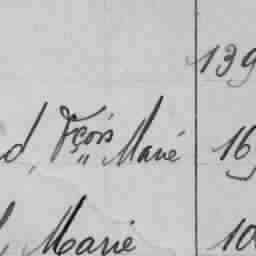 139
d, Fçois „ Marié 16
Marie 10